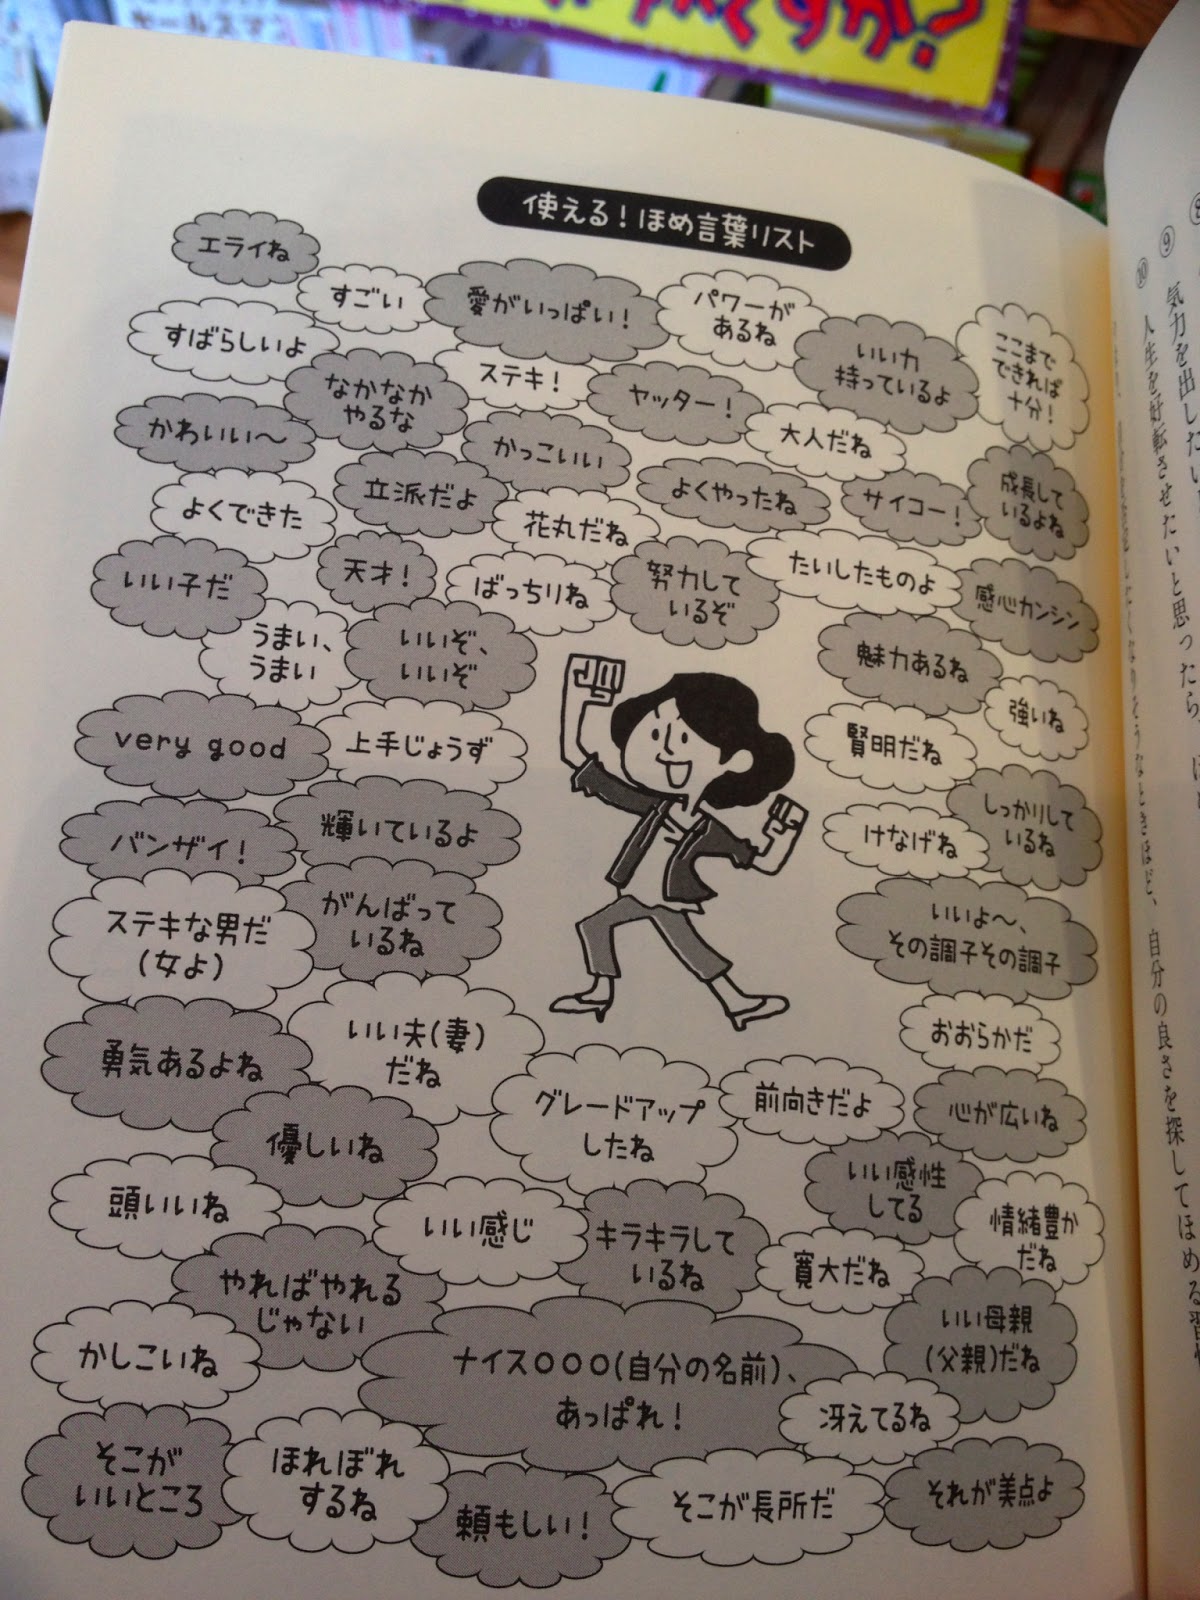 セールスマン
ですか?
使える!ほめ言葉リスト
エライね
すごい
愛がいっぱい!
パワーが
あるね
すばらしいよ
なかなか
やるな
ステキ!
ヤッター!
いい力
持っているよ
ここまで
できれば
十分!
かわいい〜
かっこいい
大人だね
よくできた
立派だよ
花丸だね
よくやったね
サイコー!
成長して
いるよね
いい子だ
天才!
ばっちりね
努力して
いるぞ
たいしたものよ
感心カンシン
うまい、
うまい
いいぞ、
いいぞ
魅力あるね
強いね
very good
上手じょうず
賢明だね
バンザイ!
輝いているよ
けなげね
しっかりして
いるね
ステキな男だ
(女よ)
がんばって
いるね
いいよ〜、
その調子その調子
勇気あるよね
いい夫(妻)
だね
おおらかだ
優しいね
グレードアップ
したね
前向きだよ
心が広いね
頭いいね
いい感じ
キラキラして
いるね
いい感性
してる
情緒豊か
だね
やればやれる
じゃない
寛大だね
かしこいね
ナイス〇〇〇(自分の名前)、
あっぱれ!
いい母親
(父親)だね
冴えてるね
そこが
いいところ
ほれぼれ
するね
頼もしい!
そこが長所だ
それが美点よ
⑨ 気力を出したい
⑩ 人生を好転させたいと思ったら、
自分の良さを探してほめる習